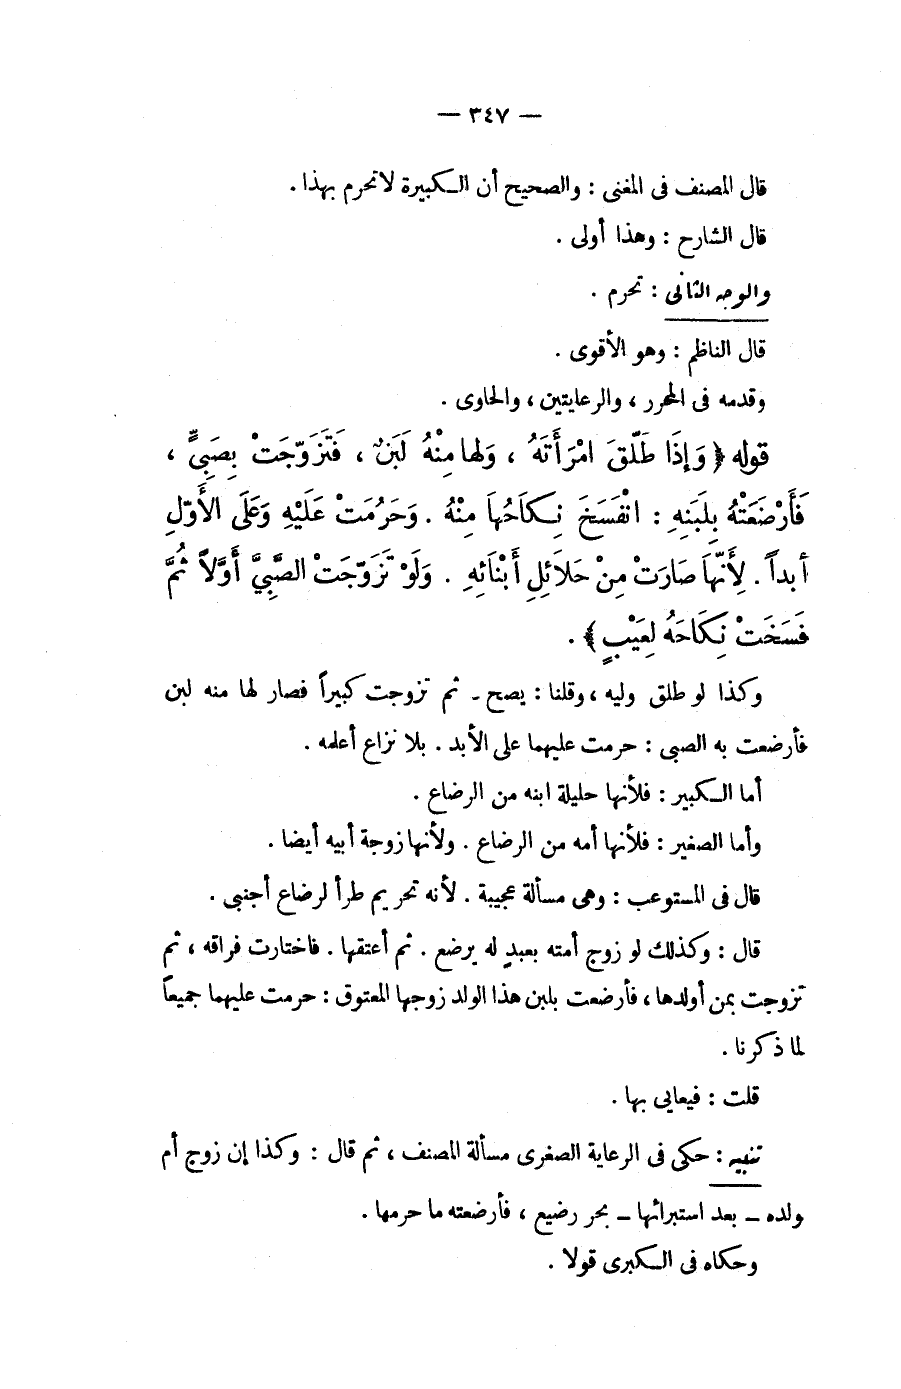 — ٣٤٧ —
قال المصنف فى المغنى : والصحيح أن الـكبيرة لاتحرم بهذا .
قال الشارح : وهذا أولى .
والوجه الثانى : تحرم .
قال الناظم : وهو الأقوى .
وقدمه فى المحرر ، والرعايتين ، والحاوى .
قوله ﴿ وَإِذَا طَلَّقَ امْرَأَتَهُ ، وَلها مِنْهُ لَبَنٌ ، فَتَزَوَّجَتْ بِصَبِىٍّ ،
فَأَرْضَعَتْهُ بِلَبَنِهِ : انْفَسَخَ نِـكَاحُهاَ مِنْهُ . وَحَرُمَتْ عَلَيْهِ وَعَلَى الأَوّلِ
أبداً . لِأَنّهاَ صَارَتْ مِنْ حَلَائِلِ أَبْنَائِهِ . وَلَوْ تَزَوّجَتْ الصَّبِيَّ أَوَّلاً ثُمَّ
فَسَخَتْ نِـكَاحَهُ لِعَيْبٍ ﴾ .
وكذا لو طلق وليه ، وقلنا : يصح ـ ثم تزوجت كبيراً فصار لها منه لبن
فأرضعت به الصبى : حرمت عليهما على الأبد . بلا نزاع أعلمه .
أما الـكبير : فلأنها حليلة ابنه من الرضاع .
وأما الصغير : فلأنها أمه من الرضاع . ولأنها زوجة أبيه أيضا .
قال فى المستوعب : وهى مسألة عجيبة . لأنه تحريم طرأ لرضاع أجنبى .
قال : وكذلك لو زوج أمته بعبدٍ له يرضع . ثم أعتقها . فاختارت فراقه ، ثم
تزوجت بمن أولدها ، فأرضعت بلبن هذا الولد زوجها المعتوق : حرمت عليهما جميعاً
لما ذكرنا .
قلت : فيعايى بها .
تنبيه : حكى فى الرعاية الصغرى مسألة المصنف ، ثم قال : وكذا إن زوج أم
ولده ـ بعد استبرائها ـ بحر رضيع ، فأرضعته ما حرمها .
وحكاه فى الـكبرى قولا .